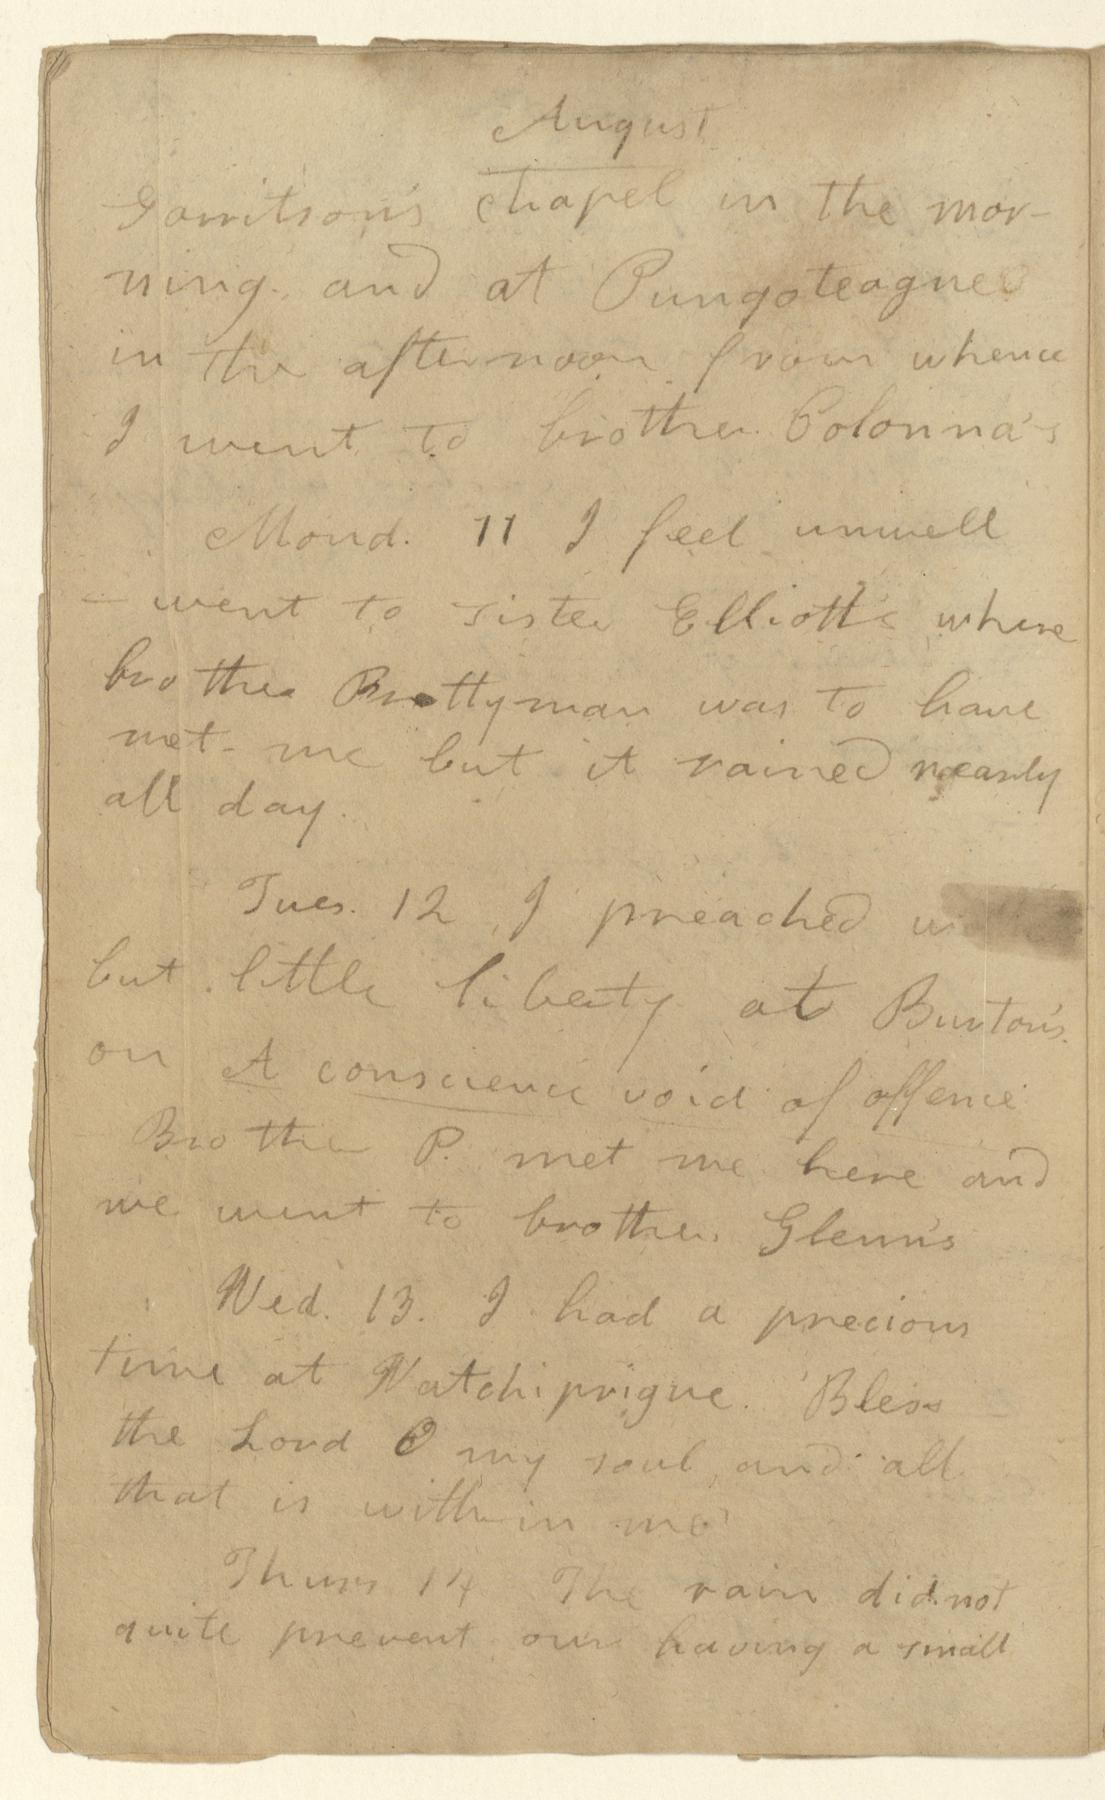 August
Garritson's chapel in the mor-
ning. and at Pungoteague
in the afternoon from whence
I went to brother Colonna's
Mond. 11 I feel unwell
– went to sister Elliott's where
brother Prettyman was to have
met me but it rained nearly
all day.
Tues. 12 I preached
but little liberty at Burton's
on A conscience void of offence
Brother P. met me here and
we went to brother Glenn's
Wed. 13. I had a precious
time at Watchiprigue. Bless
the Lord O my soul, and all
that is within me
Thurs 14 The rain did not
quite prevent our having a small